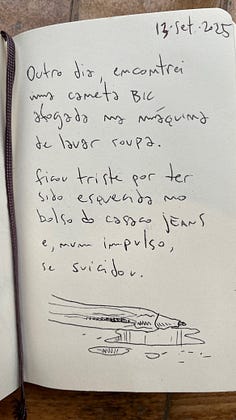 13.set.2025
Outro dia, encontrei
uma caneta BIC
afogada na máquina
de lavar roupa.
ficou triste por ter
sido esquecida no
bolso do casaco jEANS
e, num impulso,
se suicidou.